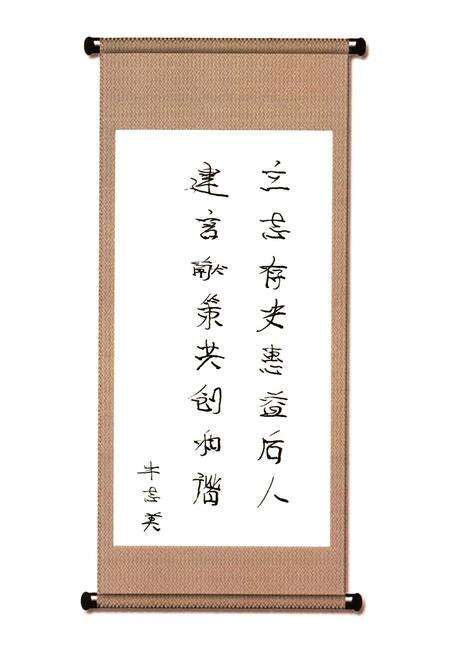 立志存史惠益后人
建言献策共创和谐
牛志英